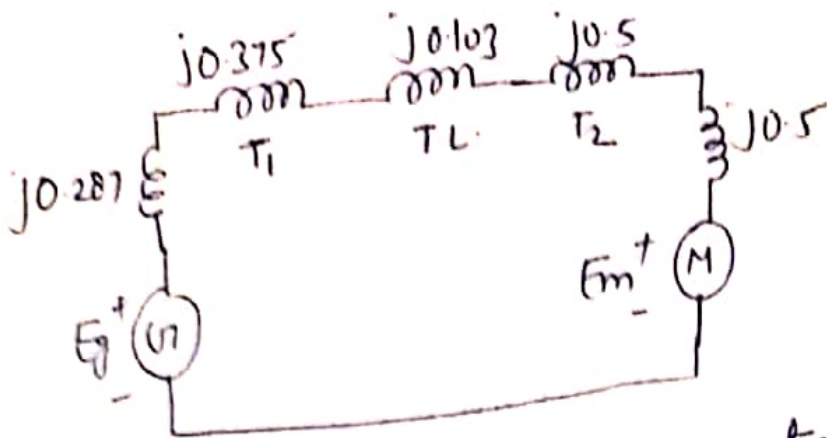 j0.375 j0.103 j0.5
T1 TL. T2 j0.5
j0.287
Em + M -
Eg + G -